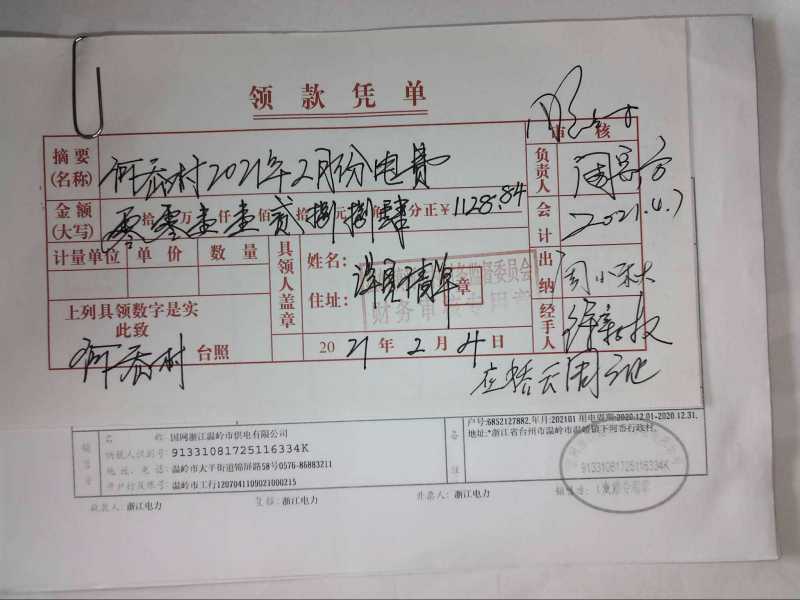 领款凭单
审核
摘要(名称) 河岙村2021年2月份电费
负责人
金额(大写) 零拾零万壹仟壹佰贰拾捌元捌角肆分正¥1128.84
会计 2021.4.7
计量单位 单价 数量
具领人盖章
姓名:
住址:
详见清单
章
财务审核专用章
出纳 周小秋
上列具领数字是实
此致
河岙村 台照
2021年2月4日
经手人
名 称: 国网浙江温岭市供电有限公司
纳税人识别号: 91331081725116334K
地址、电话: 温岭市太平街道锦屏路58号0576-86883211
开户行及账号: 温岭市工行1207041109021000215
收款人: 浙江电力
复核: 浙江电力
开票人: 浙江电力
销售方:
备注
户号:6852127882,年月:202101 用电周期:2020.12.01-2020.12.31.
地址:*浙江省台州市温岭市温峤镇下河岙行政村.
91331081725116334K